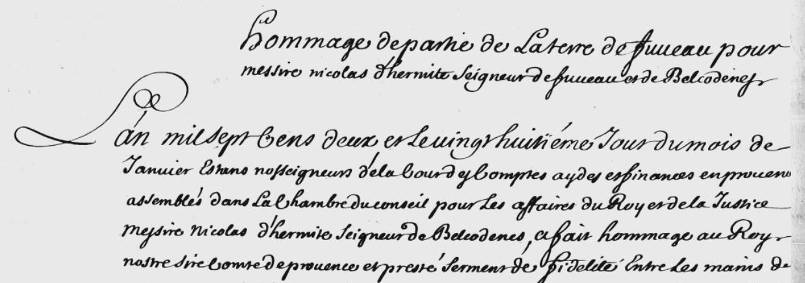 hommage de partie de La terre de fuveau pour
messire nicolas d'hermite Seigneur de fuveau et de Belcodenes
L'an mil sept Cens deux et Le vingt huitième Jour du mois de
Janvier Estans nosseigneurs de la Cour des Comptes aydes et finances en provence
assemblés dans La Chambre du conseil pour Les affaires du Roy et de la Justice
messire Nicolas d'hermite Seigneur de Belcodenes, a fait hommage au Roy
nostre sire Comte de provence et presté Serment de fidelité Entre Les mains de